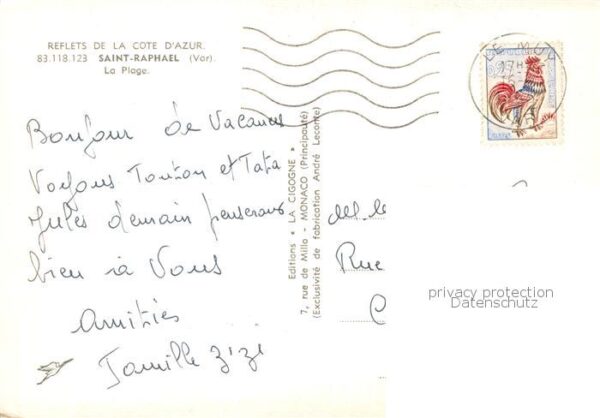 REFLETS DE LA COTE D'AZUR.
83.118.123 SAINT-RAPHAEL (Var)
La Plage.
Bonjour de Vacances
Voyons Tonton et Tata
Jules demain penserons
bien à Vous
Amitiés
Famille Zizi
Editions " LA CIGOGNE "
7, rue de Millo - MONACO (Principauté)
(Exclusivité de fabrication André Leconte)
LE MUY
Rue
privacy protection
Datenschutz